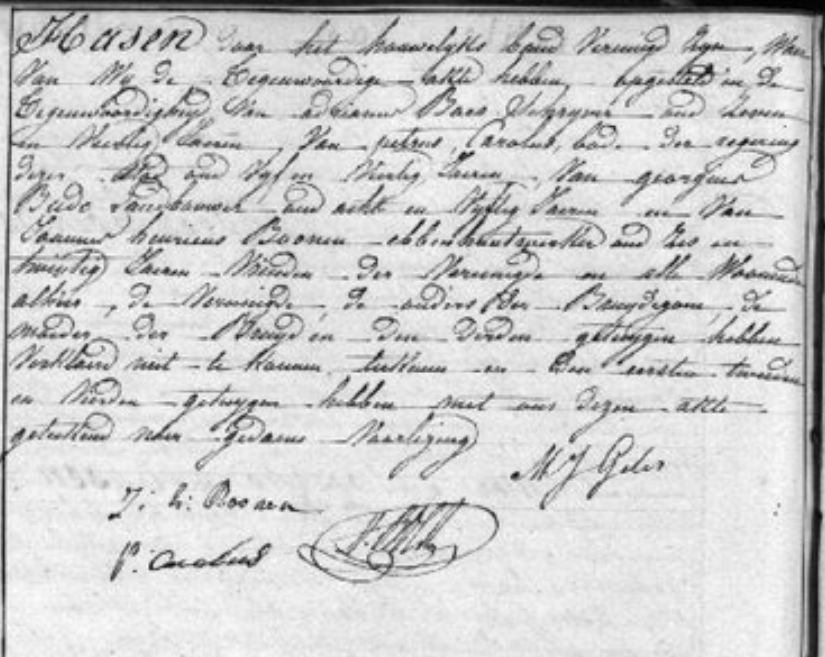 Hasen door het houwelijks band Vereenigd Zyn, Waer
Van Wy de Tegenwoordige akte hebben opgesteld in de
Tegenwoordigheyd Van adrianus Baes oud Zeven
en Veertig Jaeren, Van petrus Carolus, bode der regering
dezer Stad oud Vyf en Veertig Jaeren, Van georgius
Bude Landbouwer oud acht en Vyftig Jaeren en Van
Joannes henricus Boonen oud Zes en
twintig Jaeren Vrienden der Vereenigde en alle Woonende
alhier, de Vereenigde, de ouders der Bruydegom, de
moeder der Bruyd en Den Derden getuygen hebben
Verklaerd niet te konnen teekenen en Den eersten tweeden
en Vierden getuygen hebben met ons dezen akte
geteekend naer gedaene Voorlezing
M J Gelis
J: h: Boonen
P: Carolus